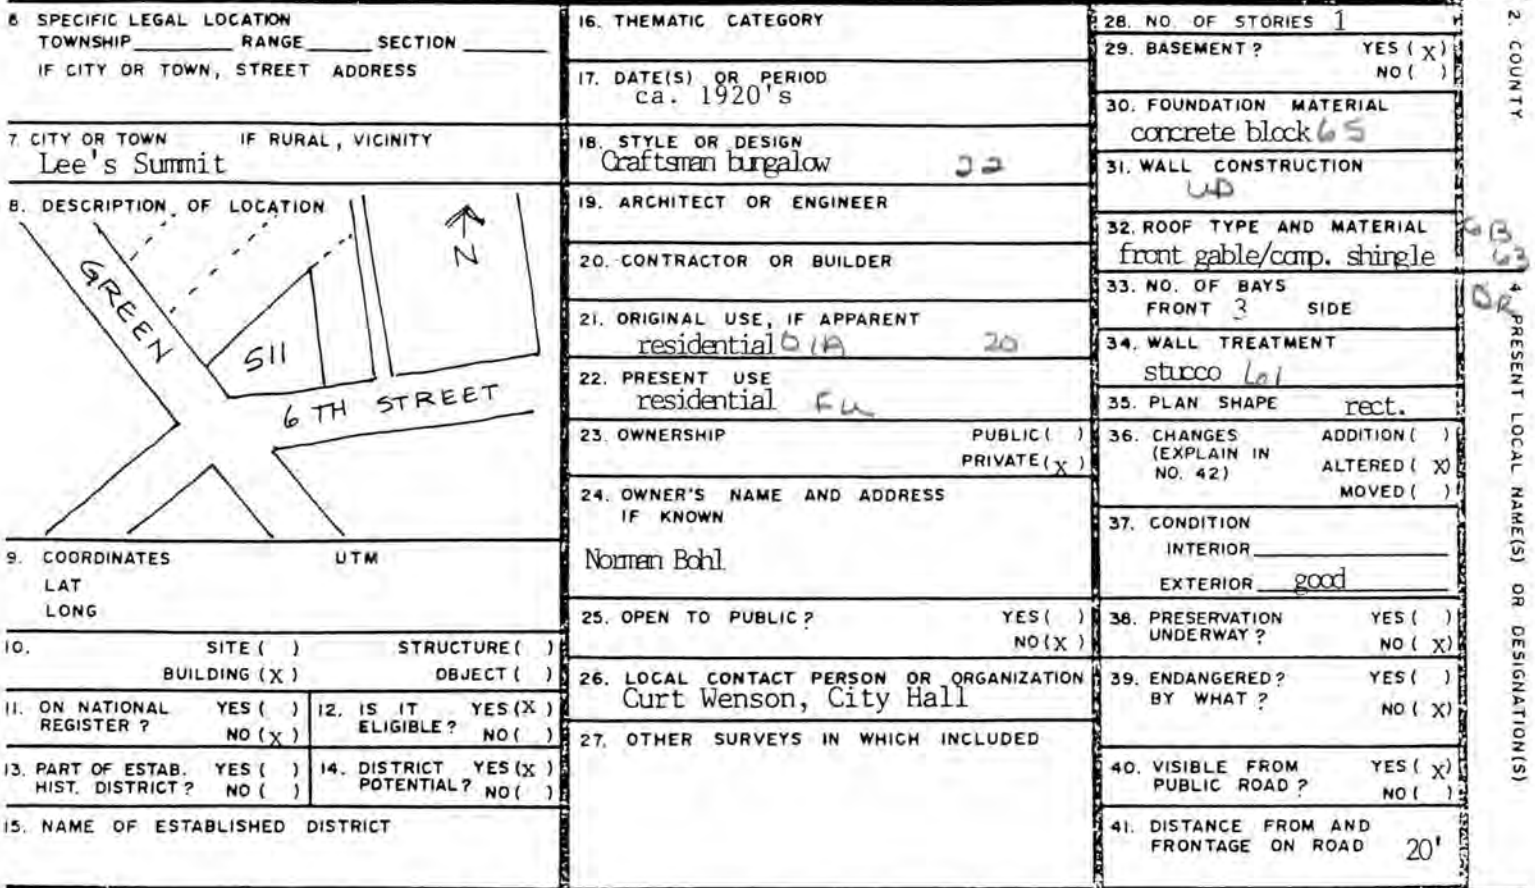 6 SPECIFIC LEGAL LOCATION
TOWNSHIP________ RANGE______ SECTION _______
IF CITY OR TOWN, STREET ADDRESS
7. CITY OR TOWN IF RURAL, VICINITY
Lee's Summit
8. DESCRIPTION OF LOCATION
N
GREEN
511
6 TH STREET
9. COORDINATES UTM
LAT
LONG
10. SITE ( ) STRUCTURE ( )
BUILDING (X) OBJECT ( )
11. ON NATIONAL REGISTER? YES ( ) NO (X)
12. IS IT ELIGIBLE? YES (X) NO ( )
13. PART OF ESTAB. HIST. DISTRICT? YES ( ) NO ( )
14. DISTRICT POTENTIAL? YES (X) NO ( )
15. NAME OF ESTABLISHED DISTRICT
16. THEMATIC CATEGORY
17. DATE(S) OR PERIOD
ca. 1920's
18. STYLE OR DESIGN
Craftsman bungalow 22
19. ARCHITECT OR ENGINEER
20. CONTRACTOR OR BUILDER
21. ORIGINAL USE, IF APPARENT
residential 01A 20
22. PRESENT USE
residential
23. OWNERSHIP PUBLIC ( )
PRIVATE (X)
24. OWNER'S NAME AND ADDRESS
IF KNOWN
Norman Bohl
25. OPEN TO PUBLIC? YES ( )
NO (X)
26. LOCAL CONTACT PERSON OR ORGANIZATION
Curt Wenson, City Hall
27. OTHER SURVEYS IN WHICH INCLUDED
28. NO. OF STORIES 1
29. BASEMENT? YES (X)
NO ( )
30. FOUNDATION MATERIAL
concrete block 65
31. WALL CONSTRUCTION
32. ROOF TYPE AND MATERIAL
front gable/comp. shingle
GB
63
33. NO. OF BAYS
FRONT 3 SIDE
34. WALL TREATMENT
stucco 61
35. PLAN SHAPE rect.
36. CHANGES ADDITION ( )
(EXPLAIN IN ALTERED (X)
NO. 42) MOVED ( )
37. CONDITION
INTERIOR____________
EXTERIOR good
38. PRESERVATION YES ( )
UNDERWAY? NO (X)
39. ENDANGERED? YES ( )
BY WHAT? NO (X)
40. VISIBLE FROM YES (X)
PUBLIC ROAD? NO ( )
41. DISTANCE FROM AND
FRONTAGE ON ROAD 20'
2. COUNTY
4. PRESENT LOCAL NAME(S) OR DESIGNATION(S)